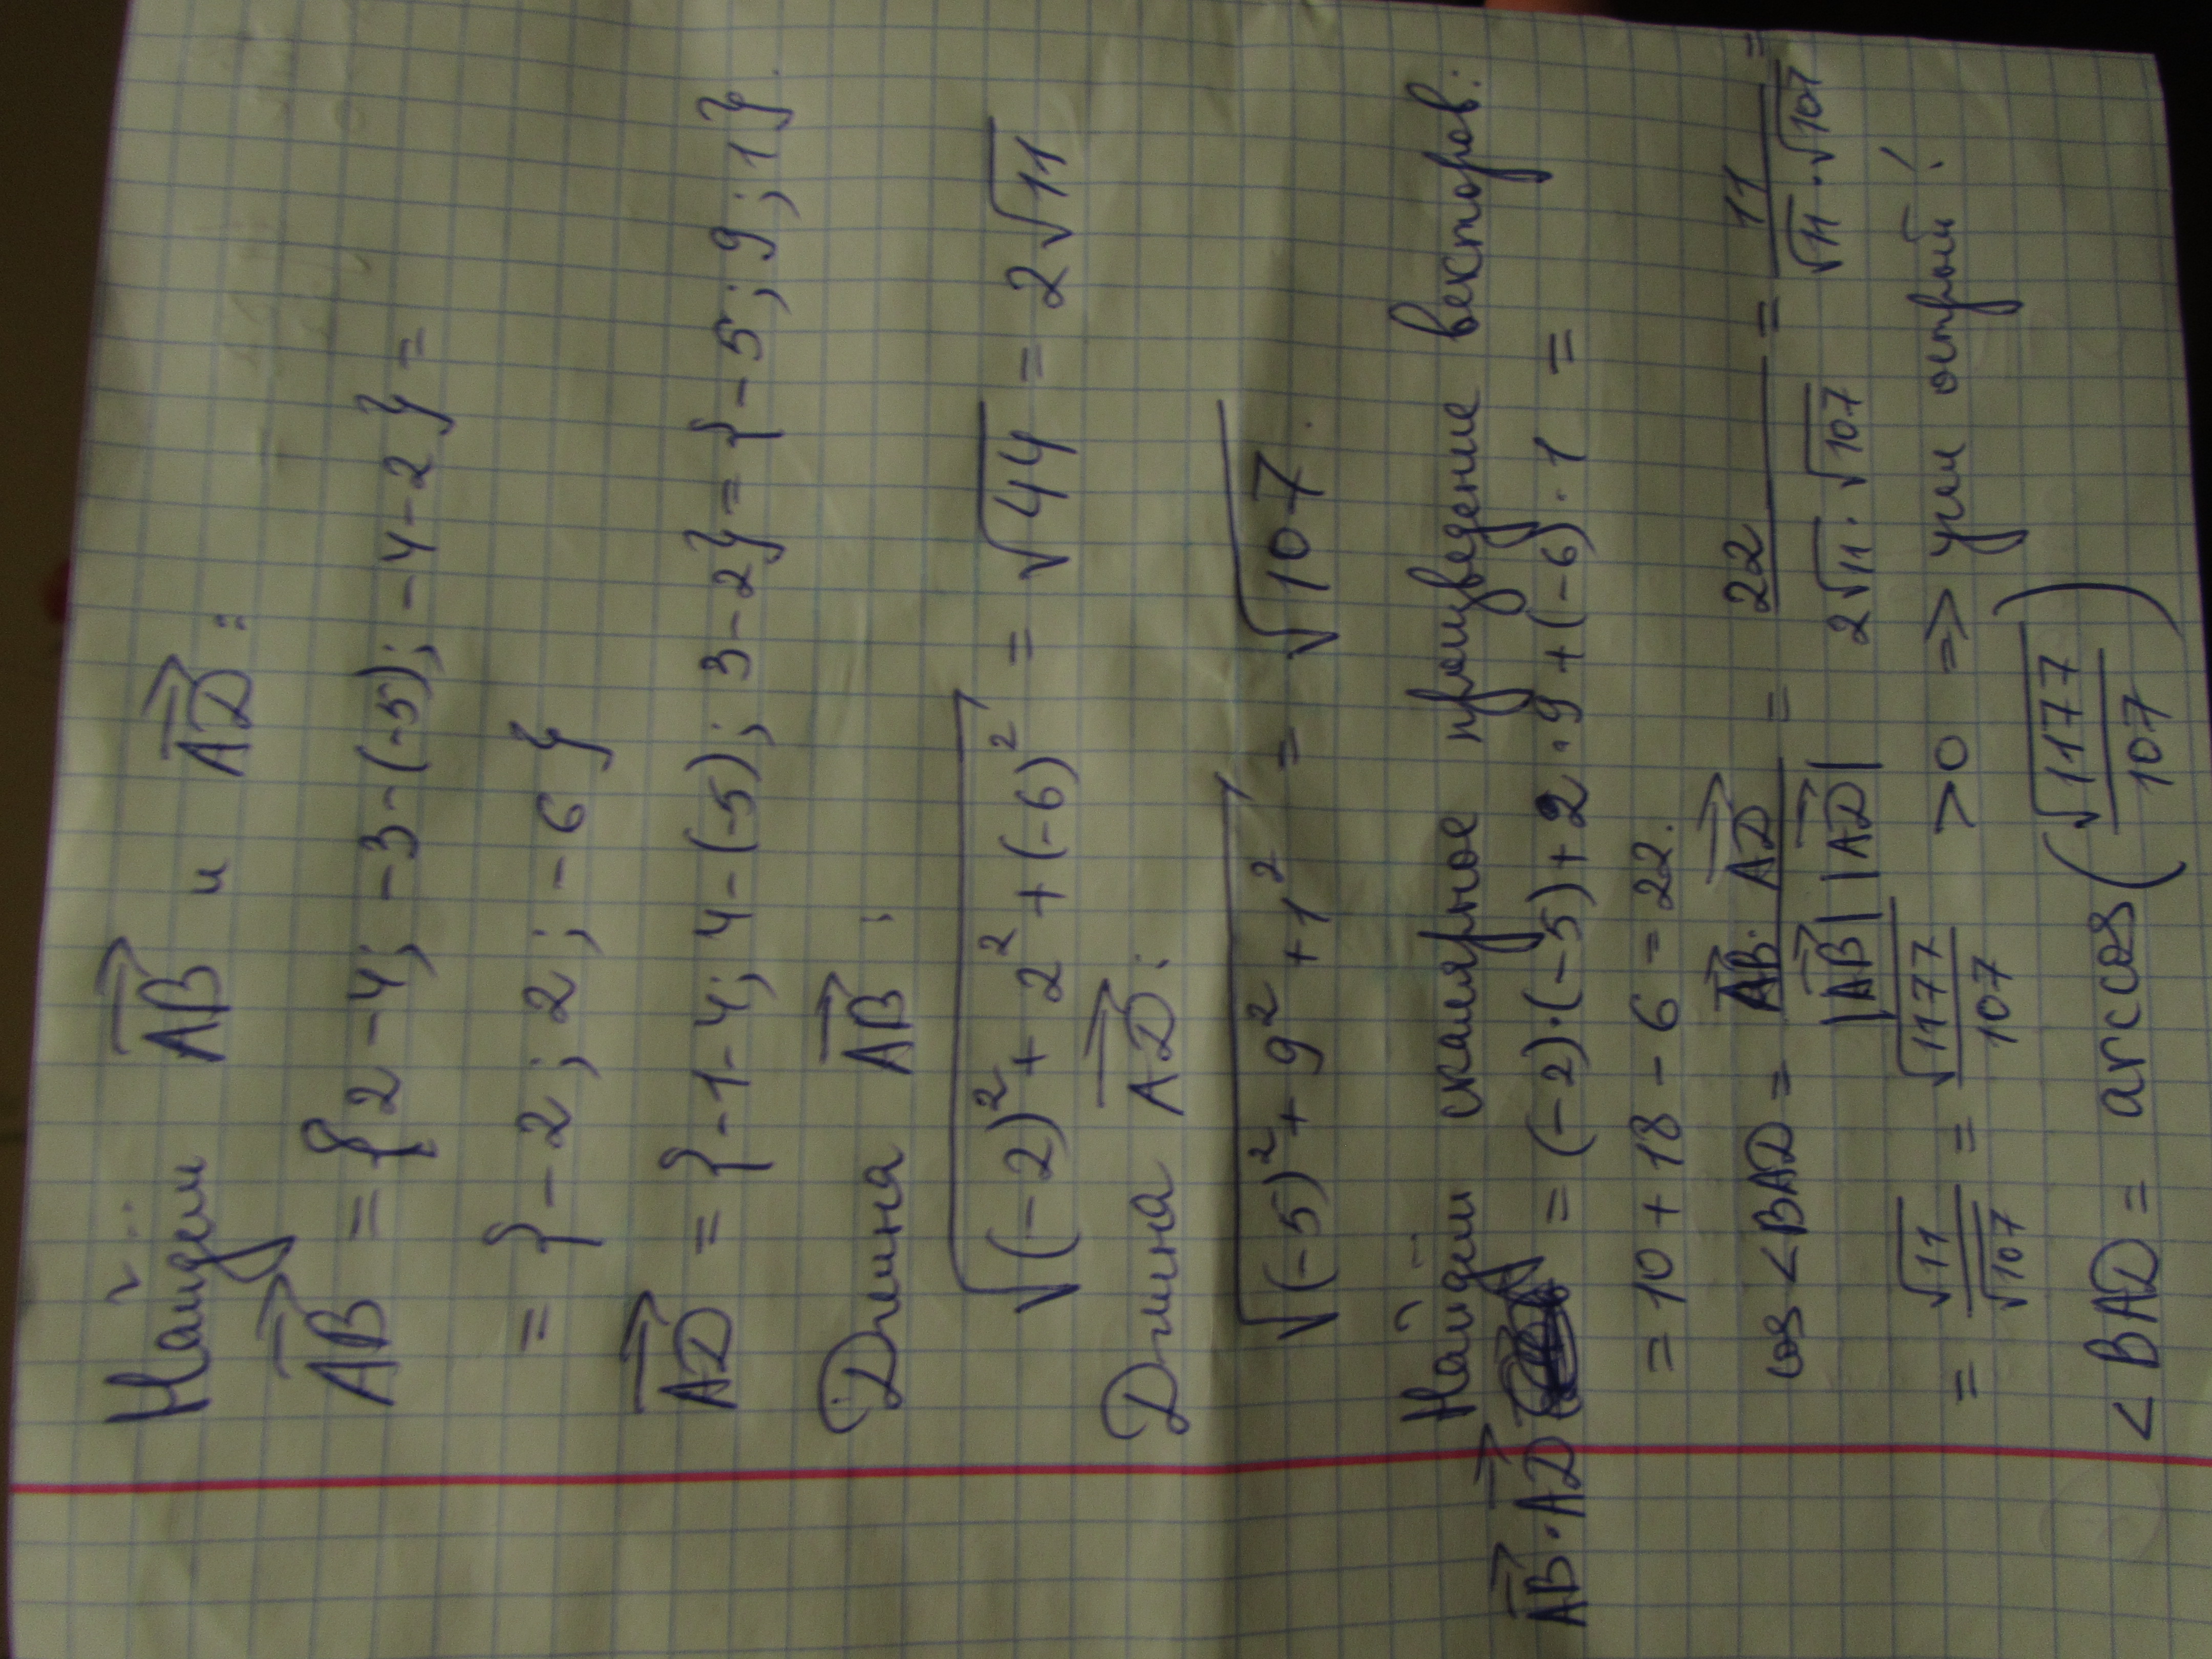 Найдем AB и AD:
AB = {2-4; -3-(-5); -4-2} =
= {-2; 2; -6}
AD = {-1-4; 4-(-5); 3-2} = {-5; 9; 1}.
Длина AB:
√((-2)² + 2² + (-6)²) = √44 = 2√11
Длина AD:
√((-5)² + 9² + 1²) = √107.
Найдем скалярное произведение векторов:
AB · AD = (-2)·(-5) + 2·9 + (-6)·1 =
= 10 + 18 - 6 = 22.
cos <BAD = AB·AD / |AB| |AD| = 22 / 2√11 · √107 = 11 / √11 · √107 =
= √11 / √107 = √1177 / 107 > 0 => угол острый!
<BAD = arccos(√1177 / 107)